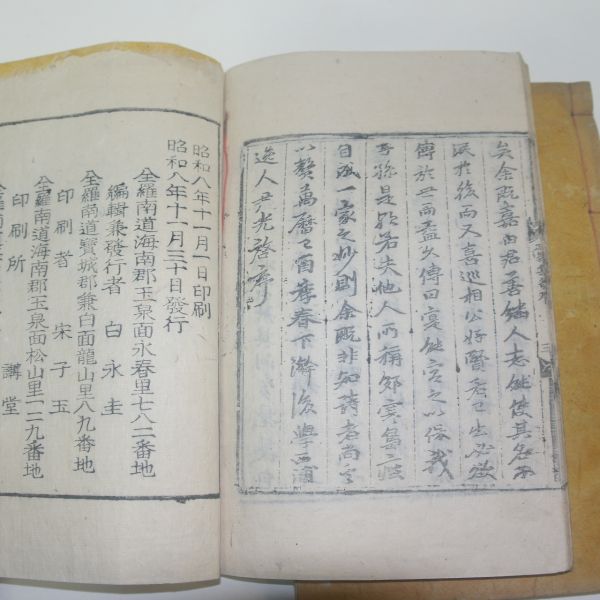 矣余旣嘉白君善繼人志能使其名不
泯於後而又喜巡相公好賢若己出必欲
傳於世而益久傳曰寔能容之以保我
子孫是歟若夫他人所稱郊寒島
自成一家之妙則余旣非知詩者而
以贅萬曆己酉暮春下澣後學西浦
逸人尹光啓序
昭和八年十一月一日印刷
昭和八年十一月三十日發行
全羅南道海南郡玉泉面永春里七八二番地
編輯兼發行者 白永圭
全羅南道寶城郡兼白面龍山里八九番地
印刷者 宋子玉
全羅南道海南郡玉泉面松山里一二九番地
印刷所 講堂